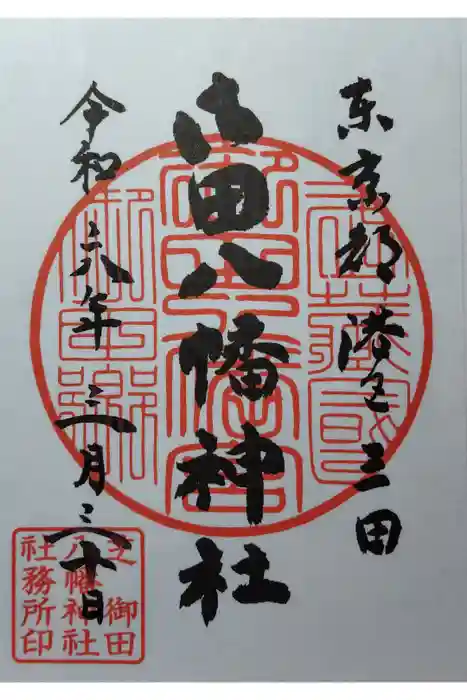 東京都港区三田
御田八幡神社
令和六年三月三十日
芝御田
八幡神社
社務所印